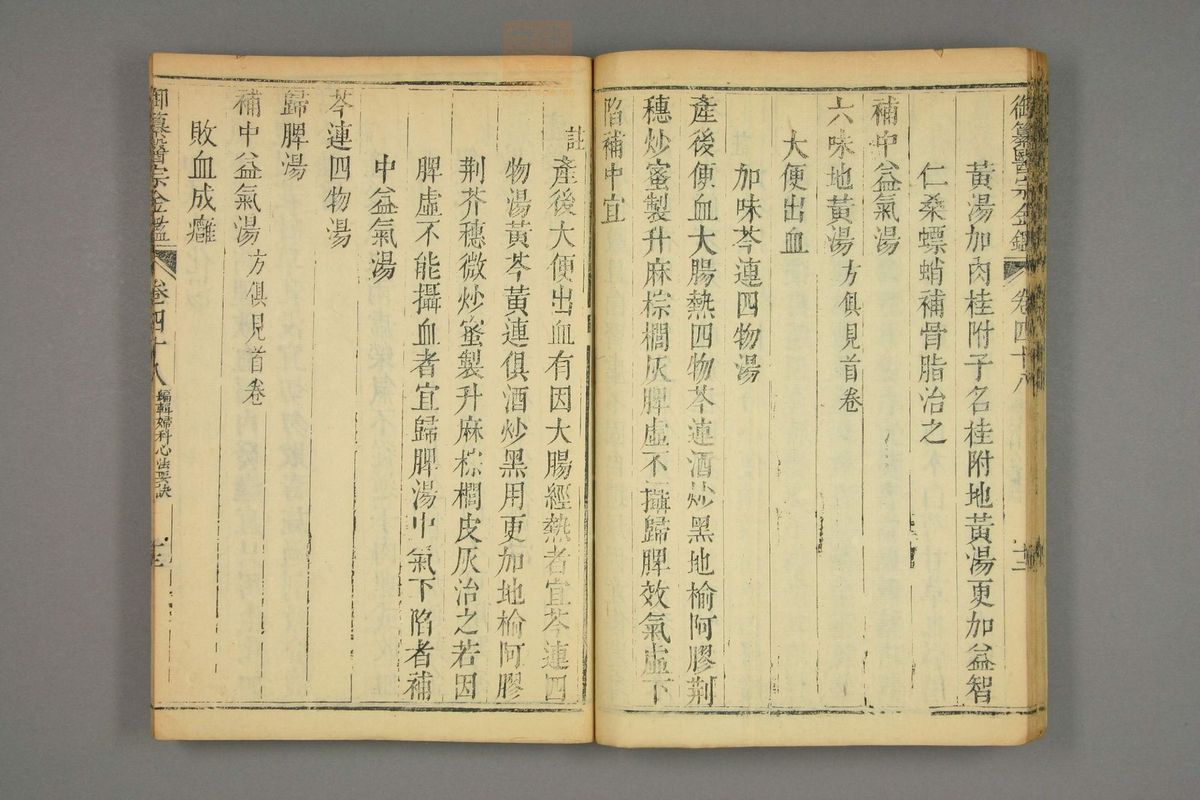 御纂醫宗金鑑 卷四十八 十二
黃湯加肉桂附子名桂附地黃湯更加益智
仁桑螵蛸補骨脂治之
補中益氣湯
六味地黃湯 方俱見首卷
大便出血
加味芩連四物湯
產後便血大腸熱四物芩連酒炒黑地榆阿膠荆
穗炒蜜製升麻棕櫚灰脾虛不攝歸脾效氣虛下
陷補中宜
註 產後大便出血有因大腸經熱者宜芩連四
物湯黃芩黃連俱酒炒黑用更加地榆阿膠
荆芥穗微炒蜜製升麻棕櫚皮灰治之若因
脾虛不能攝血者宜歸脾湯中氣下陷者補
中益氣湯
芩連四物湯
歸脾湯
補中益氣湯 方俱見首卷
敗血成癰
御纂醫宗金鑑 卷四十八 編輯婦科心法要訣 十三